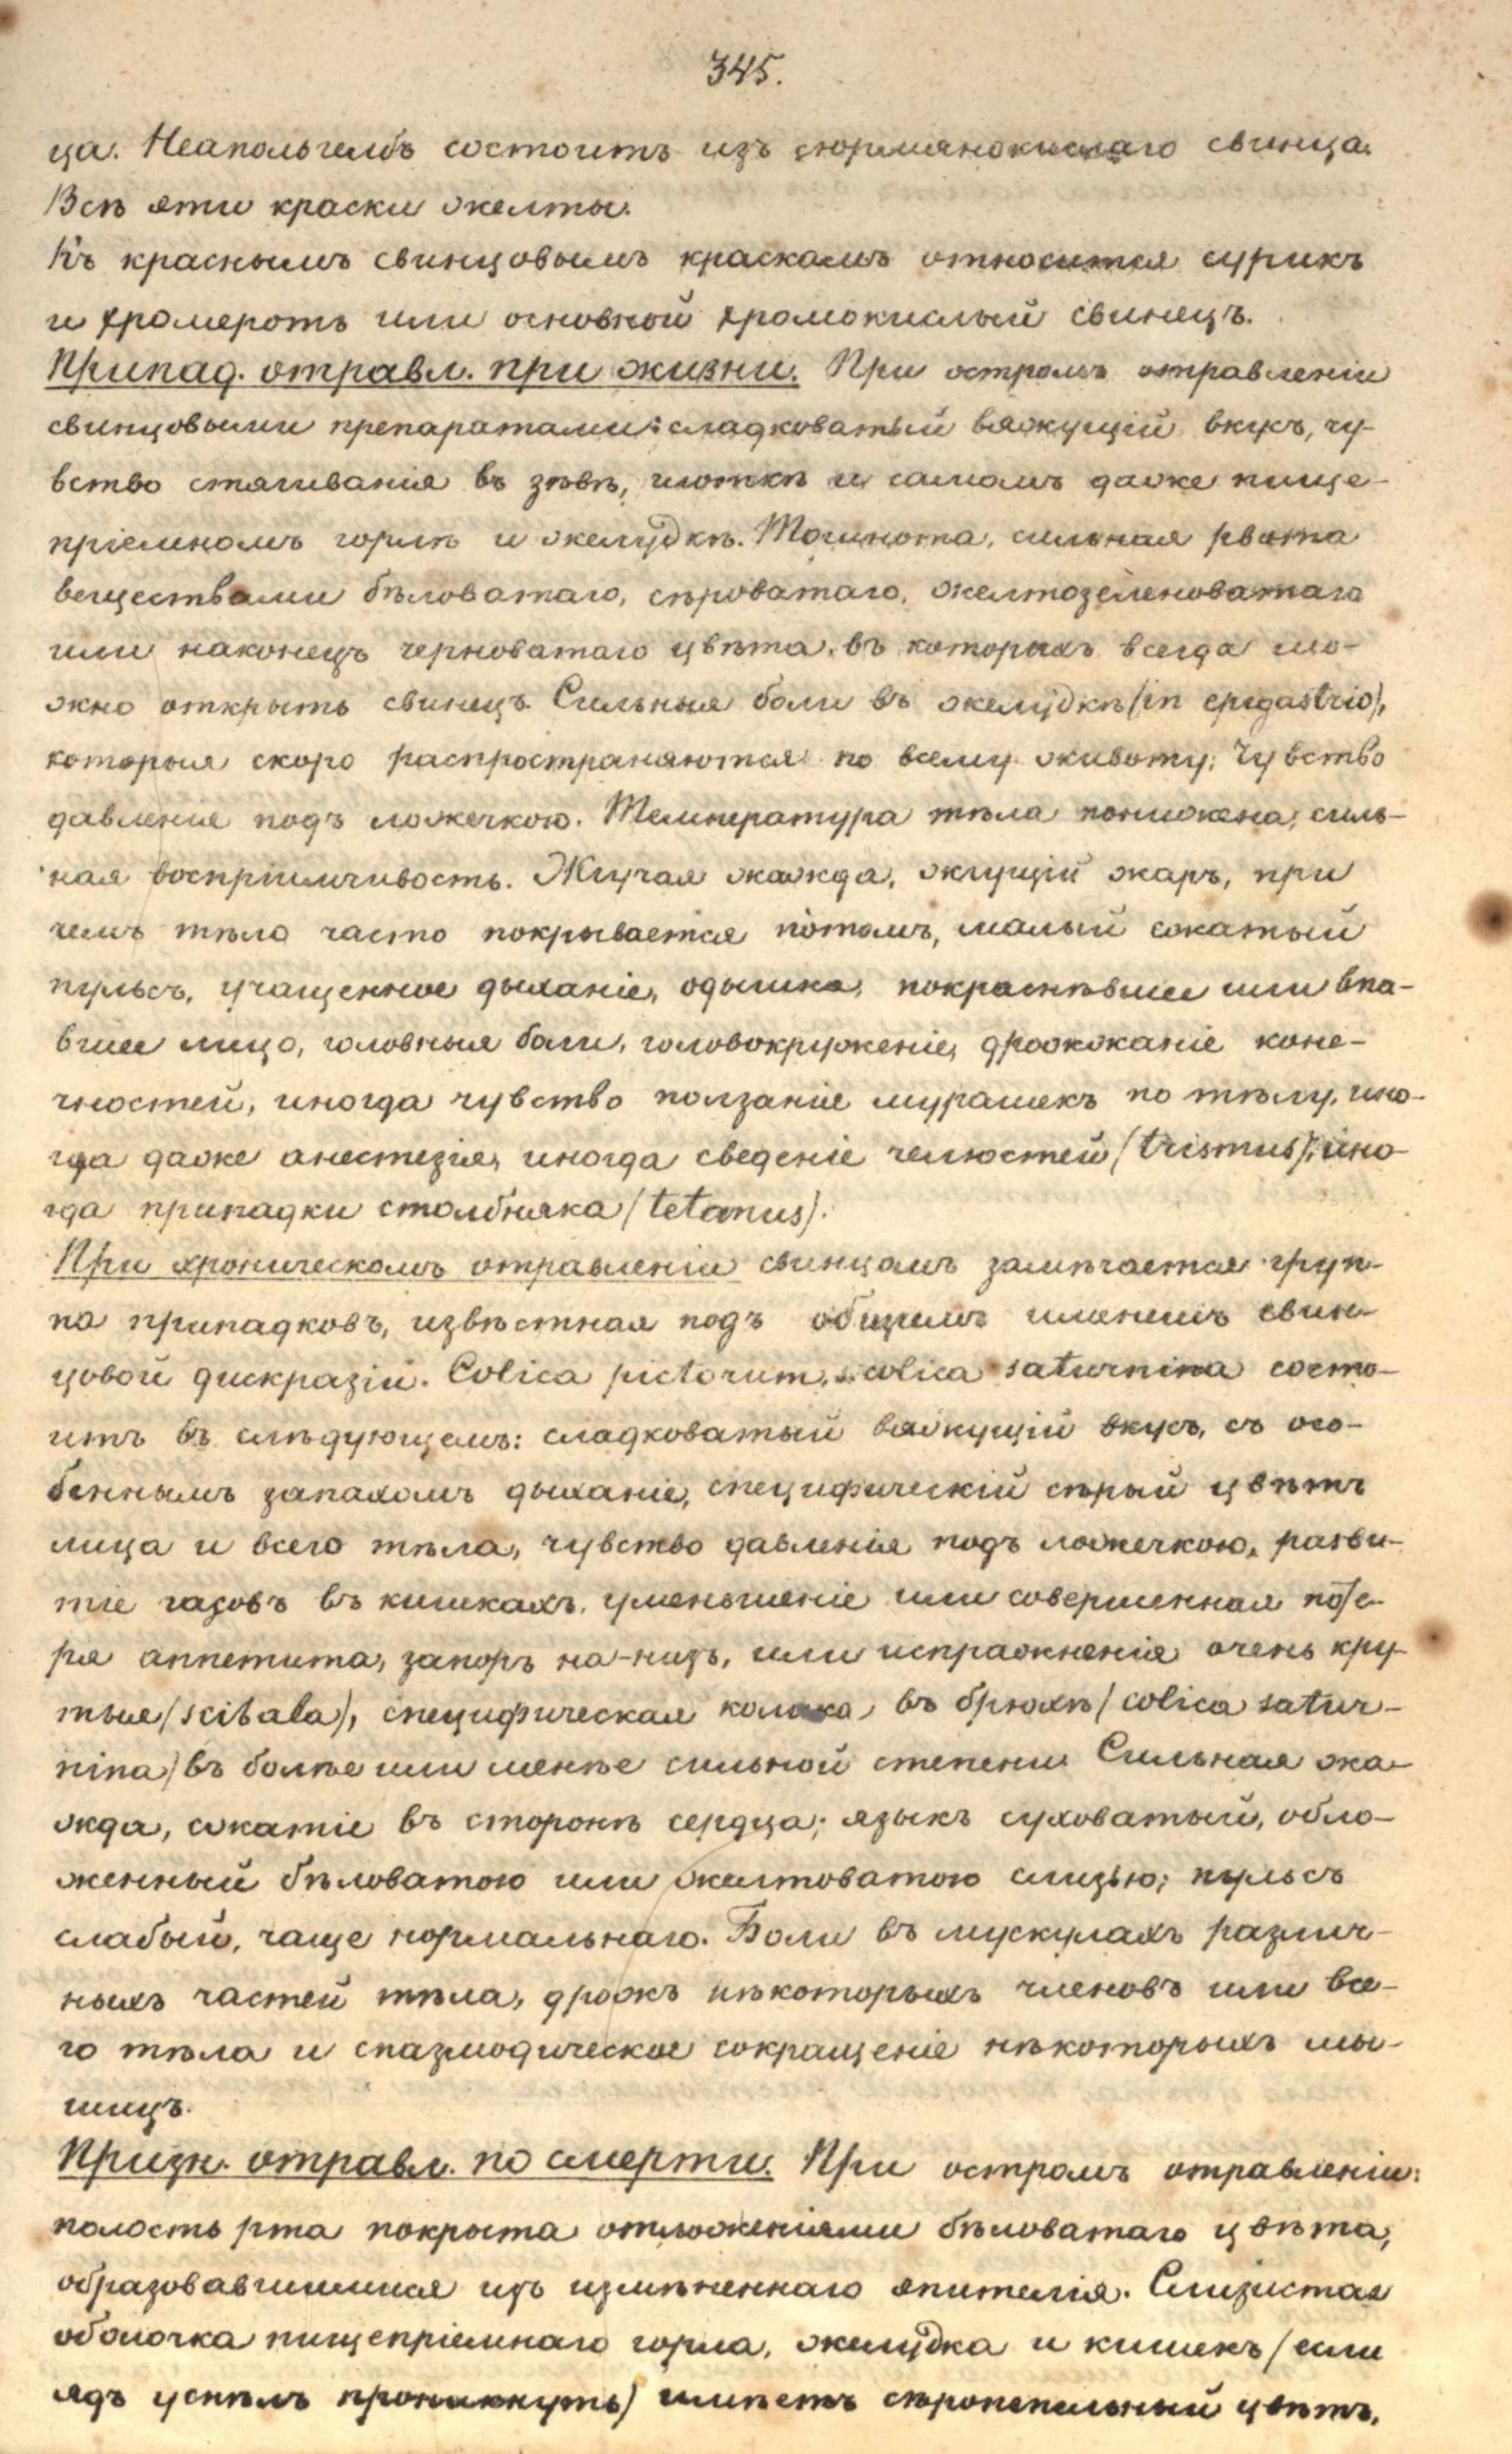 345.
ца. Неапольгелбъ состоитъ изъ сюрмянокислаго свинца.
Всѣ эти краски желты.
Къ краснымъ свинцовымъ краскамъ относится сурикъ
и хромеротъ или основной хромокислый свинецъ.
Припад. отравл. при жизни. При остромъ отравленіи
свинцовыми препаратами: сладковатый вяжущій вкусъ, чу-
вство стягиванія въ зѣвѣ, глоткѣ и самомъ даже пище-
пріемномъ горлѣ и желудкѣ. Тошнота, сильная рвота
веществами бѣловатаго, сѣроватаго, желтозеленоватаго
или наконецъ черноватаго цвѣта, въ которыхъ всегда мо-
жно открыть свинецъ. Сильныя боли въ желудкѣ (in epigastrio),
которыя скоро распространяются по всему животу; Чувство
давленія подъ ложечкою. Температура тѣла понижена; силь-
ная воспріимчивость. Жгучая жажда, жгущій жаръ, при
чемъ тѣло часто покрывается потомъ, малый сжатый
пульсъ, учащенное дыханіе, одышка, покраснѣвшее или впа-
вшее лицо, головныя боли, головокруженіе, дрожжаніе коне-
чностей, иногда чувство ползаніе мурашекъ по тѣлу, ино-
гда даже анестезія, иногда сведеніе челюстей (trismus), ино-
гда припадки столбняка (tetanus).
При хроническомъ отравленіи свинцомъ замѣчается груп-
па припадковъ, извѣстная подъ общимъ именемъ свин-
цовой дискразіи. Colica pictorum, s. colica saturnina состо-
итъ въ слѣдующемъ: сладковатый вяжущій вкусъ, съ осо-
беннымъ запахомъ дыханіе, специфическій сѣрый цвѣтъ
лица и всего тѣла, чувство давленія подъ ложечкою, разви-
тіе газовъ въ кишкахъ, уменьшеніе или совершенная поте-
ря аппетита, запоръ на-низъ, или испражненія очень кру-
тыя (scibala), специфическая колика въ брюхѣ (colica satur-
nina) въ болѣе или менѣе сильной степени. Сильная жа-
жда, сжатіе въ сторонѣ сердца; языкъ суховатый, обло-
женный бѣловатою или желтоватою слизью; пульсъ
слабый, чаще нормальнаго. Боли въ мускулахъ различ-
ныхъ частей тѣла, дрожь нѣкоторыхъ членовъ или все-
го тѣла и спазмодическое сокращеніе нѣкоторыхъ мы-
шицъ.
Призн. отравл. по смерти. При остромъ отравленіи:
полость рта покрыта отложеніями бѣловатаго цвѣта,
образовавшимися изъ измѣненнаго эпителія. Слизистая
оболочка пищепріемнаго горла, желудка и кишекъ (если
ядъ успѣлъ проникнуть) имѣетъ сѣропепельный цвѣтъ,